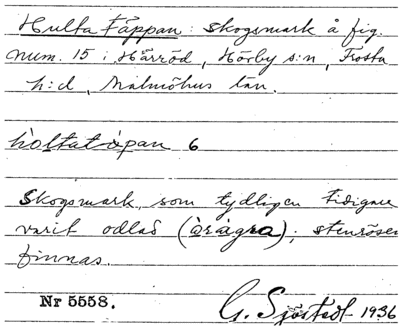 Hulta täppan: skogsmark å fig.
num. 15 i Härröd, Hörby s:n, Frosta
h:d, Malmöhus län.
hòltatápan 6
Skogsmark, som tydligen tidigare
varit odlad (àrágra); stenrösen
finnas.
Nr 5558.
G. Sjöstedt 1936